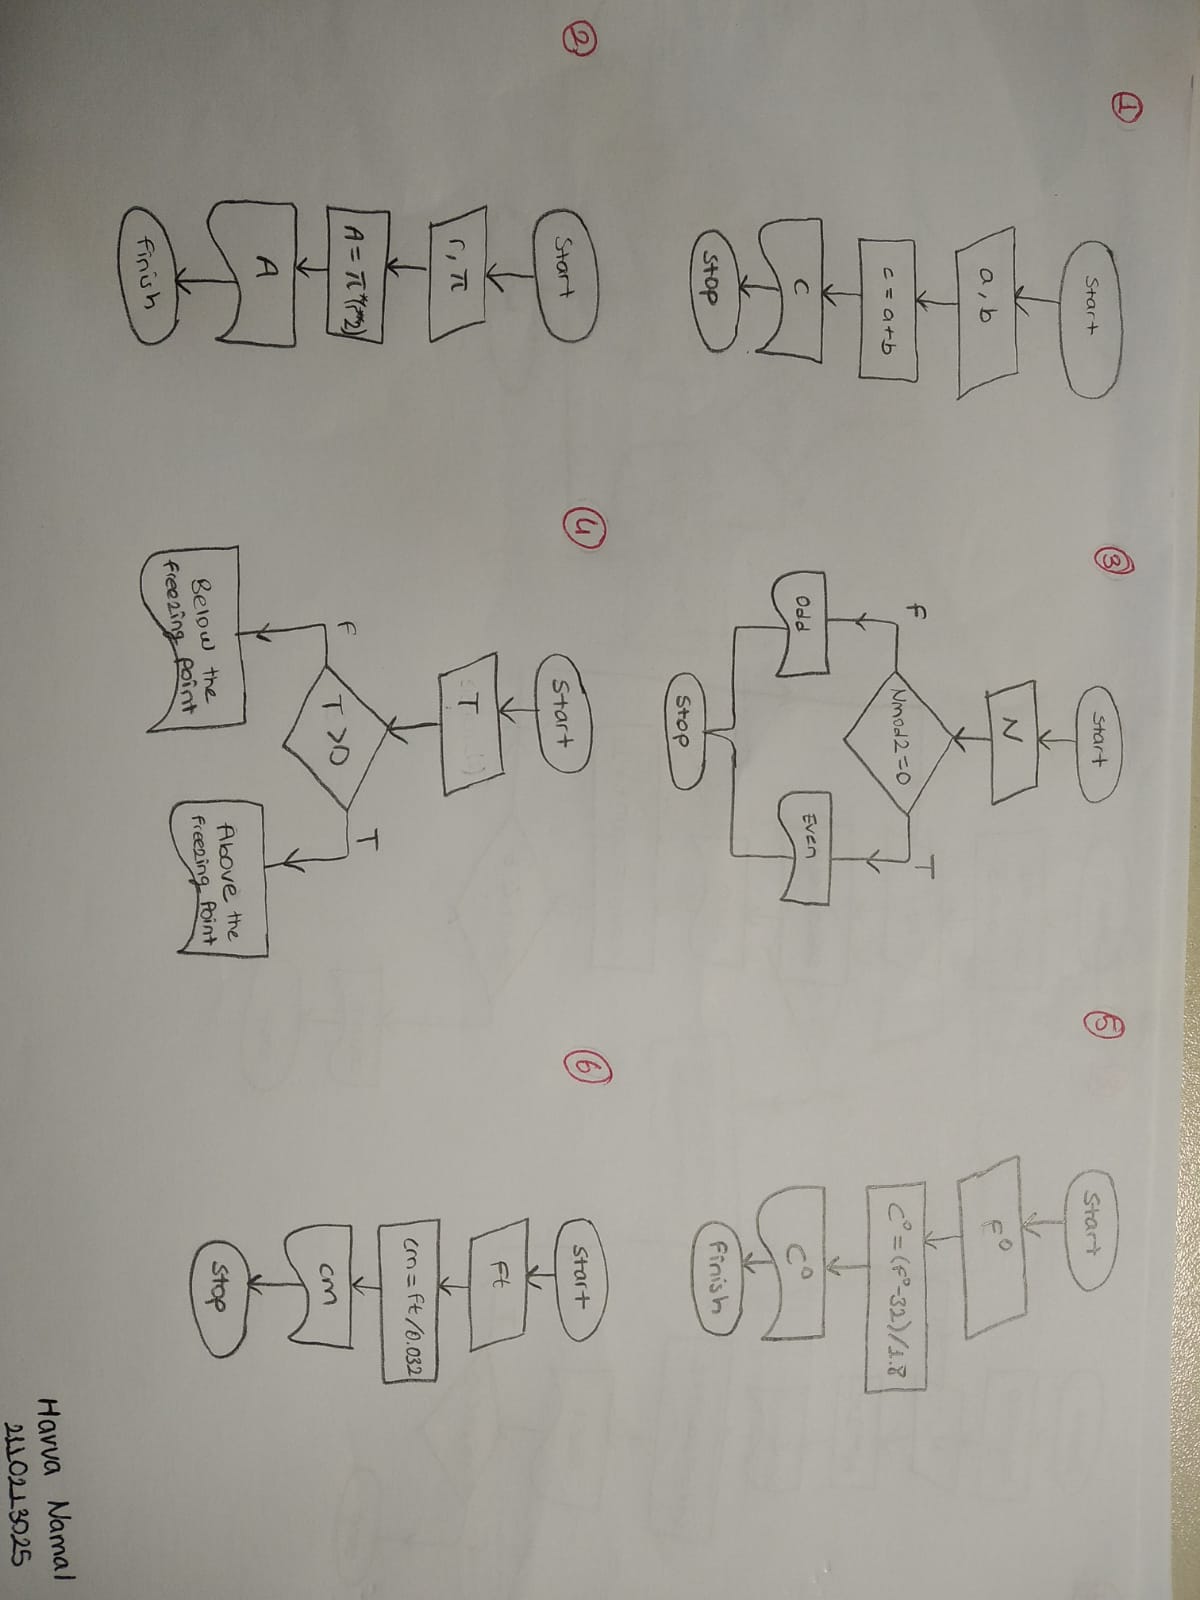 1
Start
a, b
c = a+b
C
Stop
2
Start
r, π
A = π*(r**2)
A
finish
3
Start
N
Nmod2=0
F
T
Odd
Even
Stop
4
Start
T
T >0
F
T
Below the
freezing point
Above the
freezing point
5
Start
F°
C°=(F°-32)/1.8
C°
finish
6
Start
ft
cm=ft/0.032
cm
Stop
Harva Namal